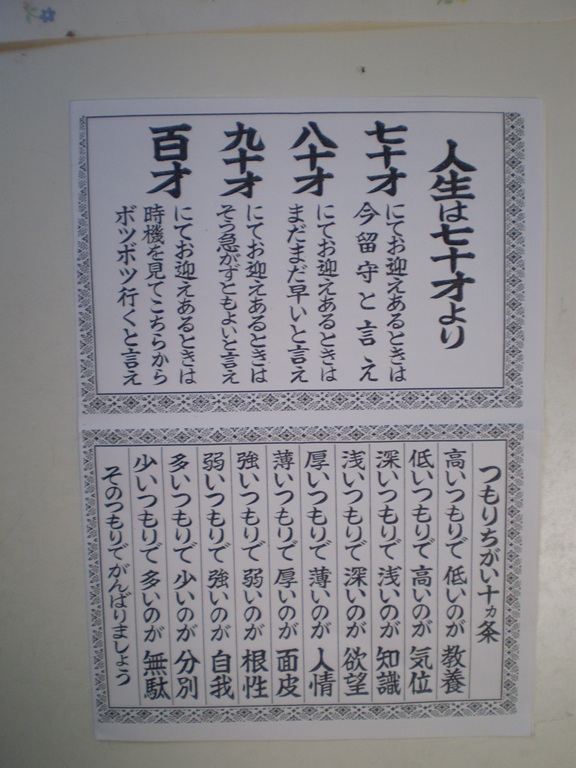 人生は七十才より
七十才
にてお迎えあるときは
今留守と言え
八十才
にてお迎えあるときは
まだまだ早いと言え
九十才
にてお迎えあるときは
そう急がずともよいと言え
百才
にてお迎えあるときは
時機を見てこちらから
ボツボツ行くと言え
つもりちがい十ヵ条
高いつもりで低いのが教養
低いつもりで高いのが気位
深いつもりで浅いのが知識
浅いつもりで深いのが欲望
厚いつもりで薄いのが人情
薄いつもりで厚いのが面皮
強いつもりで弱いのが根性
弱いつもりで強いのが自我
多いつもりで少いのが分別
少いつもりで多いのが無駄
そのつもりでがんばりましょう